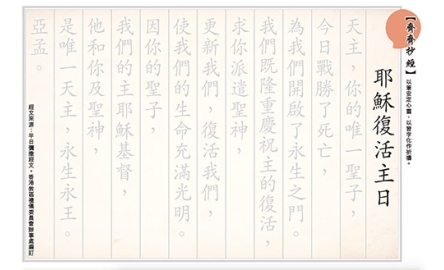 【齊齊抄經】
以筆安定心靈，以習字化作祈禱。
耶穌復活主日
天主，你的唯一聖子，
今日戰勝了死亡，
為我們開啟了永生之門。
我們既隆重慶祝主的復活，
求你派遣聖神，
更新我們，復活我們，
使我們的生命充滿光明。
因你的聖子，
我們的主耶穌基督，
他和你及聖神，
是唯一天主，永生永王。
亞孟。
經文來源：平日彌撒經文。香港教區禮儀委員會辦事處編訂